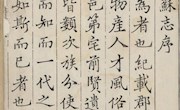 蘇志序
焉者也紀載郡
物産人才風俗
邑第宅前賢遺
皆類次族分
而如而一代之
如斯而已者也